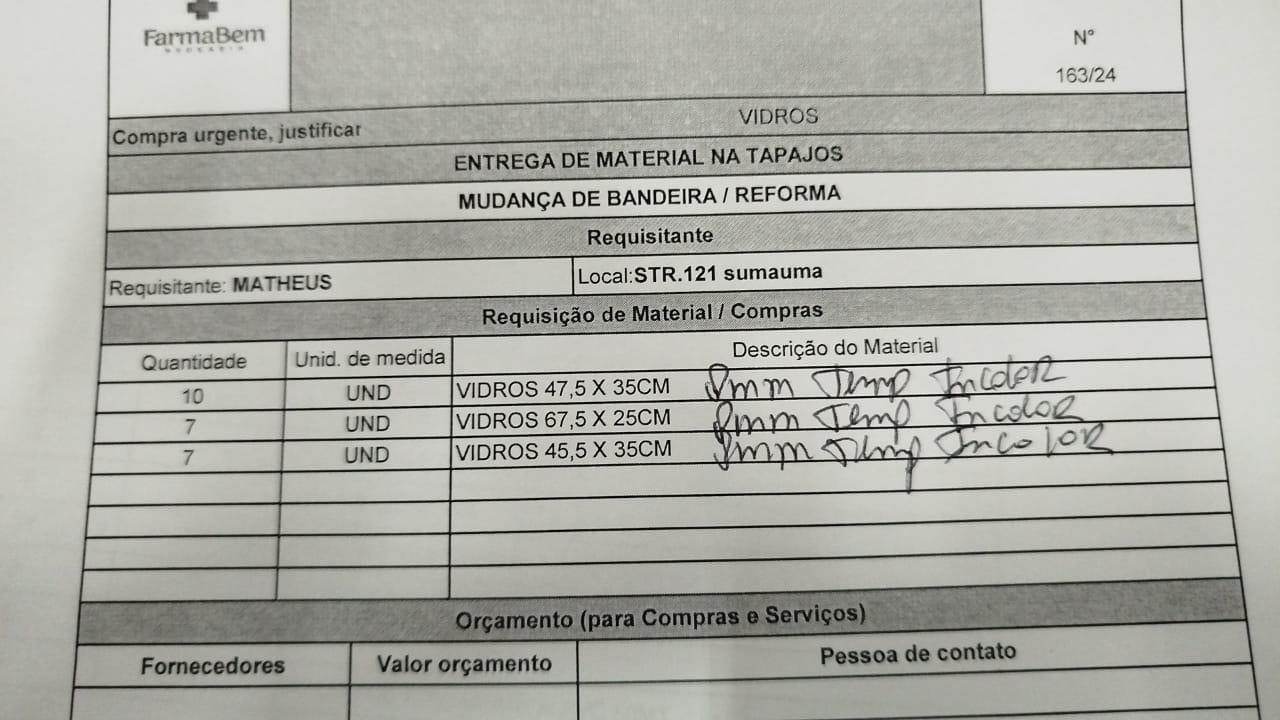 FarmaBem
DROGARIA
N°
163/24
Compra urgente, justificar VIDROS
ENTREGA DE MATERIAL NA TAPAJOS
MUDANÇA DE BANDEIRA / REFORMA
Requisitante
Requisitante: MATHEUS Local:STR.121 sumauma
Requisição de Material / Compras
Quantidade Unid. de medida Descrição do Material
10 UND VIDROS 47,5 X 35CM 8mm Temp Incolor
7 UND VIDROS 67,5 X 25CM 8mm Temp Incolor
7 UND VIDROS 45,5 X 35CM 8mm Temp Incolor
Orçamento (para Compras e Serviços)
Fornecedores Valor orçamento Pessoa de contato